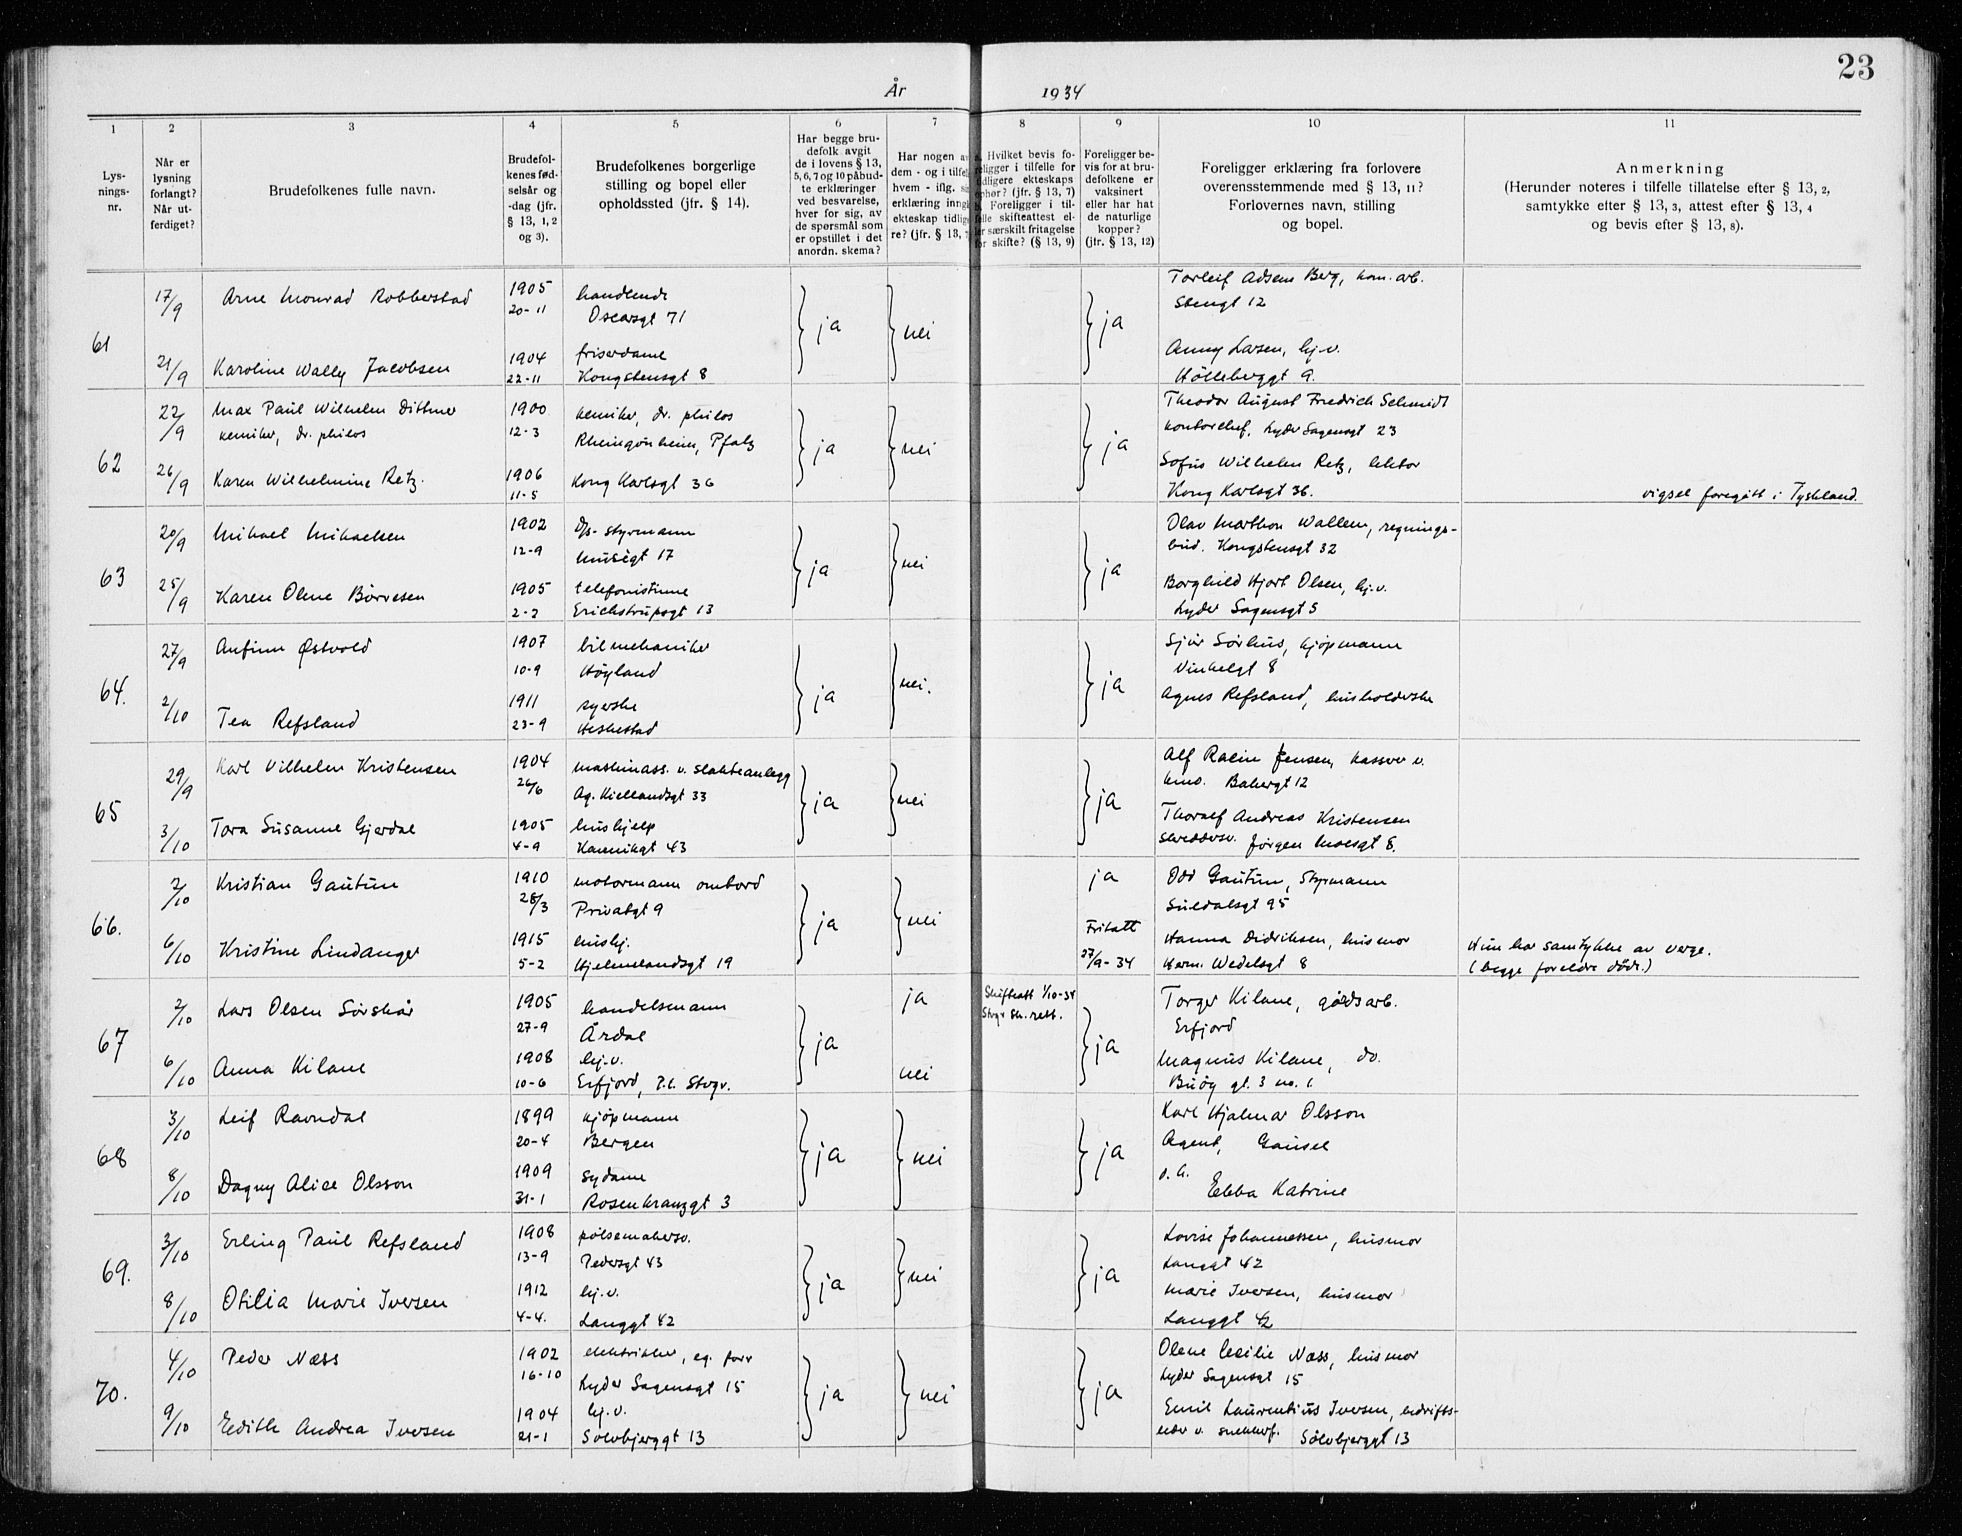 23
År 1934
1 2 3 4 5 6 7 8 9 10 11
Lys-
nings-
nr.
Når er
lysning
forlangt?
Når ut-
ferdiget?
Brudefolkenes fulle navn.
Brudefol-
kenes fød-
selsår og
-dag (jfr.
§ 13, 1, 2
og 3).
Brudefolkenes borgerlige
stilling og bopel eller
opholdssted (jfr. § 14).
Har begge bru-
defolk avgit
de i lovens § 13,
5, 6, 7 og 10 påbud-
te erklæringer
ved besvarelse,
hver for sig, av
de spørsmål som
er opstillet i det
anordn. skema?
Har nogen a
dem - og i tilfel
hvem - iflg. s
erklæring inng
ekteskap tidlig
re? (jfr. § 13, 7
a. Hvilket bevis fo-
religger i tilfelle for
tidligere ekteskaps
ophør? (jfr. § 13, 7)
b. Foreligger i til-
felle skifteattest el-
ler særskilt fritagelse
for skifte? (§ 13, 9)
Foreligger be-
vis for at bru-
defolkene er
vaksinert
eller har hat
de naturlige
kopper?
(jfr. § 13, 12)
Foreligger erklæring fra forlovere
overensstemmende med § 13, 11?
Forlovernes navn, stilling
og bopel.
Anmerkning
(Herunder noteres i tilfelle tillatelse efter § 13, 2,
samtykke efter § 13, 3, attest efter § 13, 4
og bevis efter § 13, 8).
61
17/9 Arne Monrad Robberstad 1905 handlende Torleif Adsem Berg, kom. arb.
20-11 Oscarsgt 71 Stengt 12
ja nei ja
21/9 Karoline Wally Jacobsen 1904 friserdame Anny Larsen, hj.v.
22-11 Kongstensgt 8 Hølleberggt 9.
62
22/9 Max Paul Wilhelm Dittmer 1900 kemiker, dr. philos Theodor August Friedrich Schmidt
kemiker, dr. philos 12-3 Rheingönheim, Pfalz kontorchef, Lyder Sagensgt 23
ja nei ja
26/9 Karen Wilhelmine Retz. 1906 Kong Karlsgt 36 Sofus Wilhelm Retz, lektor
11-5 Kong Karlsgt 36. vigsel foregått i Tyskland.
63
20/9 Mikael Mikaelsen 1902 D/s- styrmann Olav Marthon Wallem, regnings-
12-9 Musègt 17 bud. Kongstensgt 32
ja nei ja
25/9 Karen Oline Børvesen 1905 telefonistinne Borghild Hjort Olsen, hj.v.
2-2 Erichstrupsgt 13 Lyder Sagensgt 5
64.
27/9 Anfinn Østvold 1907 bilmekaniker Sjur Sørhus, kjøpmann
10-9 Høyland Vinkelgt 8
ja nei. ja
2/10 Tea Refsland 1911 syerske Agnes Refsland, husholderske
23-9 Heskestad
65
29/9 Karl Vilhelm Kristensen 1904 maskinass. v. slakteanlegg Alf Racin Jensen, kasser v.
26/6 Ag. Kiellandsgt 33 kino. Bakergt 12
ja nei ja
3/10 Tora Susanne Gjerdal 1905 hushjelp Thoralf Andreas Kristensen
4-9 Kannikgt 43 skreddersv. Jørgen Moesgt 8.
66.
2/10 Kristian Gautun 1910 motormann ombord ja Odd Gautun, styrmann
28/3 Privatgt 9 Suldalsgt 95
ja nei Fritatt
6/10 Kristine Lindanger 1915 hushj. Hanna Didriksen, husmor Hun har samtykke av verge.
5-2 Hjelmelandsgt 19 27/9-34 Herm. Wedelsgt 8 (begge foreldre døde.)
67
2/10 Lars Olsen Sørskår 1905 handelsmann ja Skifteatt 1/10-34 Torger Kilane, gårdsarb.
27-9 Årdal Stvgr sk. rett. Erfjord
ja ja
6/10 Anna Kilane 1908 hj.v. nei Magnus Kilane, do.
10-6 Erfjord, p.t. Stvgr. Buøy gt. 3 no. 1
68
3/10 Leif Ravndal 1899 kjøpmann Karl Hjalmar Olsson
20-4 Bergen Agent, Gausel
ja nei ja
8/10 Dagny Alice Olsson 1909 sydame o.a.
31-1 Rosenkranzgt 3 Ebba Katrine
69.
3/10 Erling Paul Refsland 1908 pølsemakersv. Lovise Johannessen, husmor
13-9 Pedersgt 43 Langgt 42
ja nei ja
8/10 Otilia Marie Iversen 1912 hj.v. Marie Iversen, husmor
4-4. Langgt 42 Langgt 42
70.
4/10 Peder Næss 1902 elektriker, eg. forr Olene Cecilie Næss, husmor
16-10 Lyder Sagensgt 15 Lyder Sagensgt 15
ja nei ja
9/10 Edith Andrea Iversen 1904 hj.v. Emil Laurentius Iversen, bedrifts-
21-1 Solvbjerggt 13 leder v. Sølvbjerggt 13